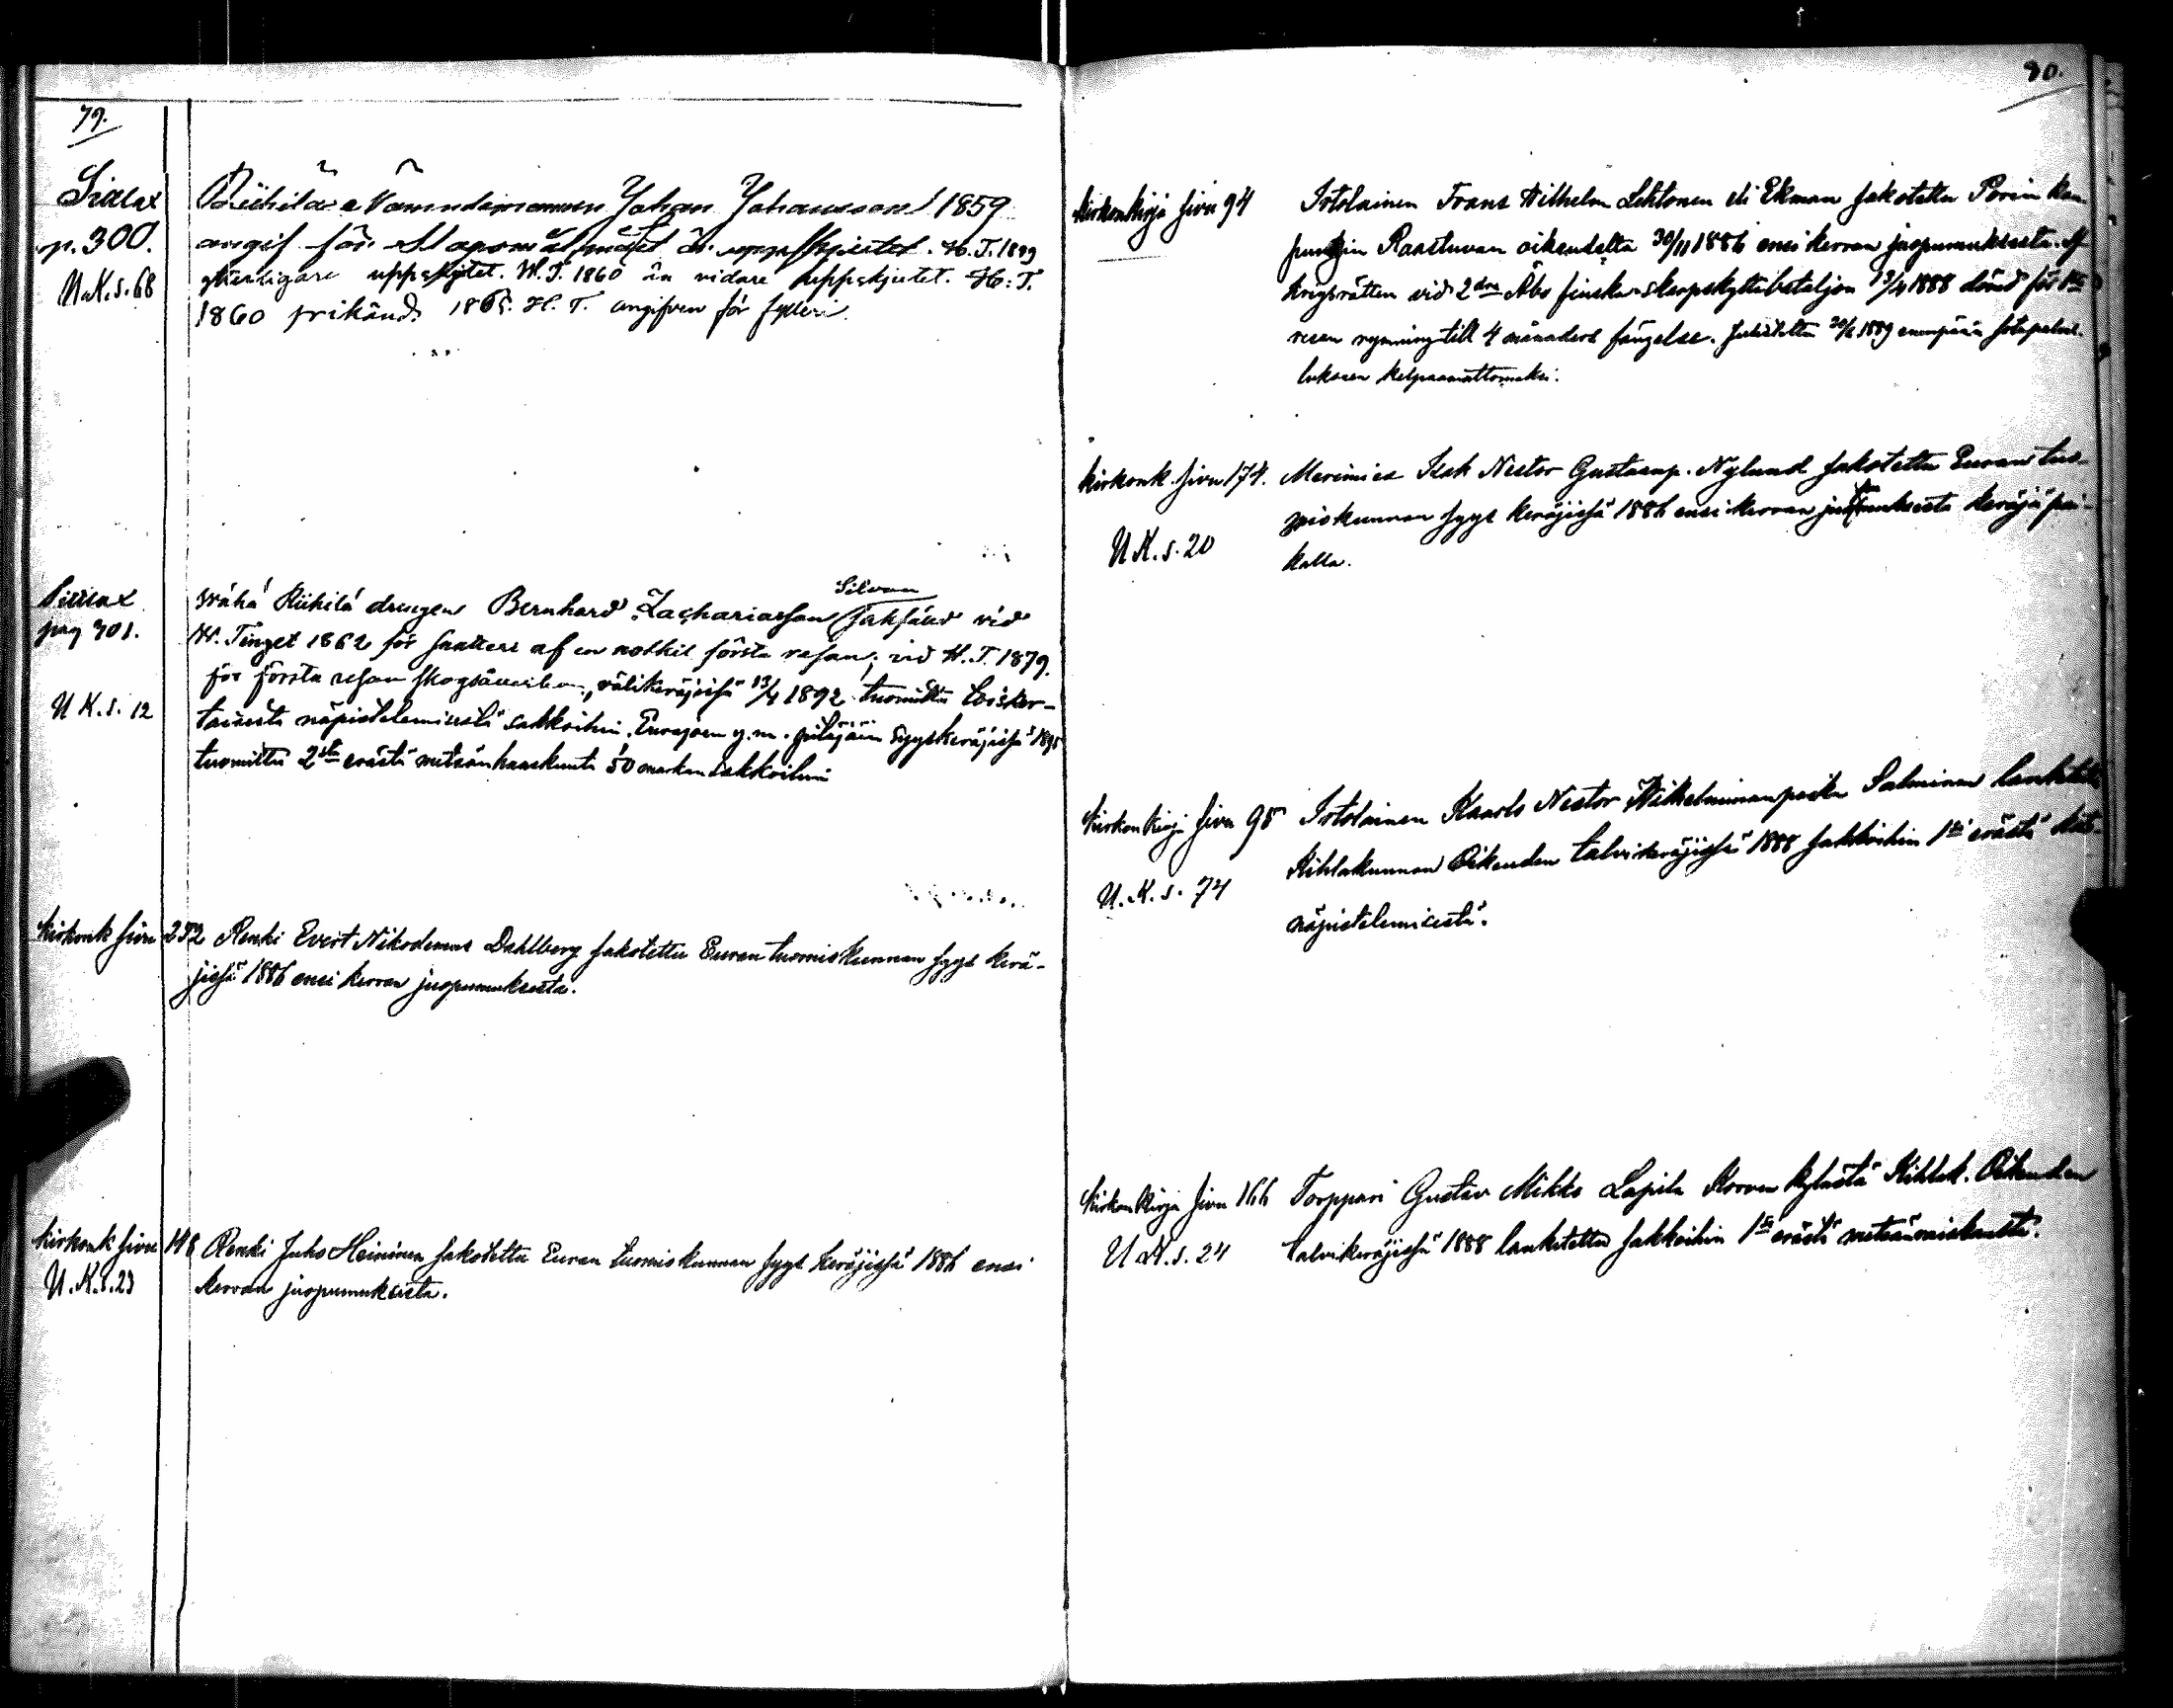 79.
Siælax
p. 300.
U.K.s. 68
Riihilä Nämndemannen Johan Johansson 1859
angif för Slagsmål målet är uppskjutet. H.T. 1859
ytterligare uppskjutet. W.T. 1860 än vidare uppskjutet. H.T.
1860 frikänd. 1865. H.T. angifven för fylleri
pag 301.
U K.s. 12
Silvan
Wähä Riihilä drengen Bernhard Zachariasson sakfäld vid
W. Tinget 1862 för snatteri af en första resan; vid H.T. 1879
för första resan skogsåverkan, välikeräjissä 13/4 1892 tuomittu toisker-
taisesta näpistelemisestä sakkoihin. Eurajoen y.m. pitäjäin syyskeräjissä 1895
tuomittu 2sta erästä metsänhaaskuusta 50 markan sakkoihin
kirkonk sivu 252 Renki Evert Nikodemus Dahlberg sakotettu Euran tuomiokunnan syys kerä-
jissä 1886 ensi kerran juopumuksesta.
kirkonk sivu 148 Renki Juho Heininen sakotettu Euran tuomiokunnan syys keräjissä 1886 ensi
U.K.s. 23 kerran juopumuksesta.
90.
kirkonkirja sivu 94 Itsolainen Frans Wilhelm Lehtonen eli Ekman sakotettu Porin kau-
pungin Raastuvan oikeudelta 30/11 1886 ensi kerran juopumuksesta. Af
krigsrätten vid 2dra Åbo finska skarpskyttebataljon 13/4 1888 dömd för 1sta
resan rymning till 4 månaders fängelse. 1889 sotapalve-
lukseen kelpaamattomaksi.
kirkonk. sivu 174. Merimies Isak Nestor Gustaanp. Nylund sakotettu Euran tuo-
miokunnan syys keräjissä 1886 ensi kerran juopumuksesta keräjä pai-
U K. s. 20 kalla.
kirkon kirja sivu 95 Itsolainen Kaarlo Nestor Wilhelmiinanpoika Salminen langetettu
Kihlakunnan Oikeuden talvikeräjissä 1888 sakkoihin 1stä erästä
U. K. s. 74 näpistelemisestä.
kirkon kirja sivu 166 Torppari Gustav Mikko Lapila Korven kylästä Kihlak. Oikeuden
U K. s. 24 talvikeräjissä 1888 langetettu sakkoihin 1stä erästä metsänraiskausta.